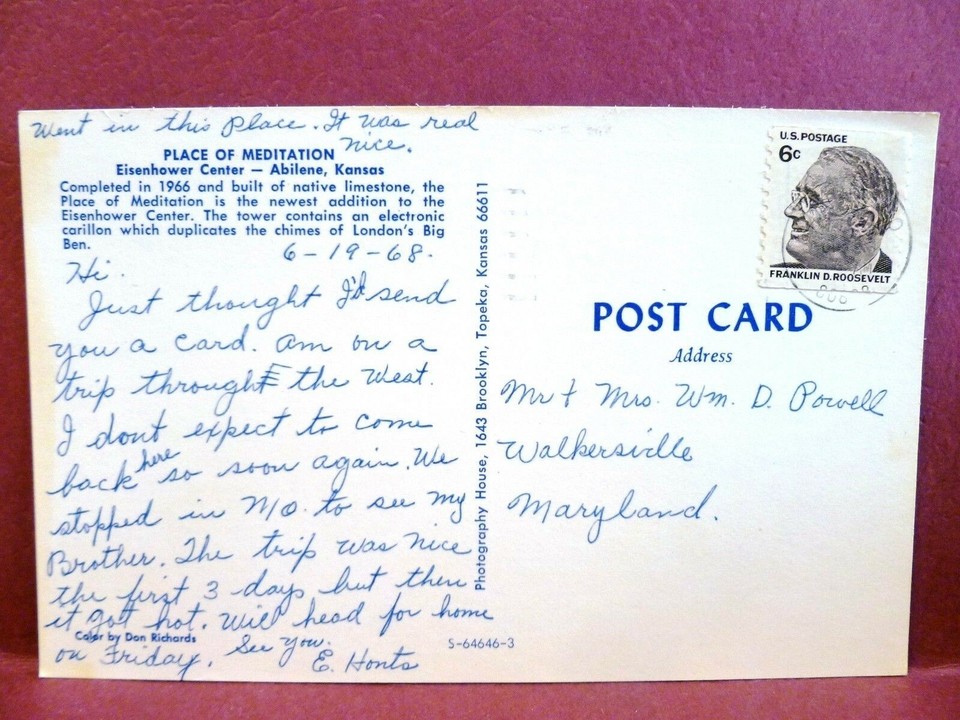 Went in this place. It was real
nice.
PLACE OF MEDITATION
Eisenhower Center — Abilene, Kansas
Completed in 1966 and built of native limestone, the
Place of Meditation is the newest addition to the
Eisenhower Center. The tower contains an electronic
carillon which duplicates the chimes of London's Big
Ben.
6-19-68.
Hi.
Just thought I'd send
you a card. Am on a
trip through the West.
I dont expect to come
back here so soon again. We
stopped in Mo. to see my
Brother. The trip was nice
the first 3 days but then
it got hot. Will head for home
Color by Don Richards
on Friday. See you.
E. Honts
S-64646-3
Photography House, 1643 Brooklyn, Topeka, Kansas 66611
U.S. POSTAGE
6c
FRANKLIN D. ROOSEVELT
POST CARD
Address
Mr & Mrs. Wm. D. Powell
Walkersville
Maryland.